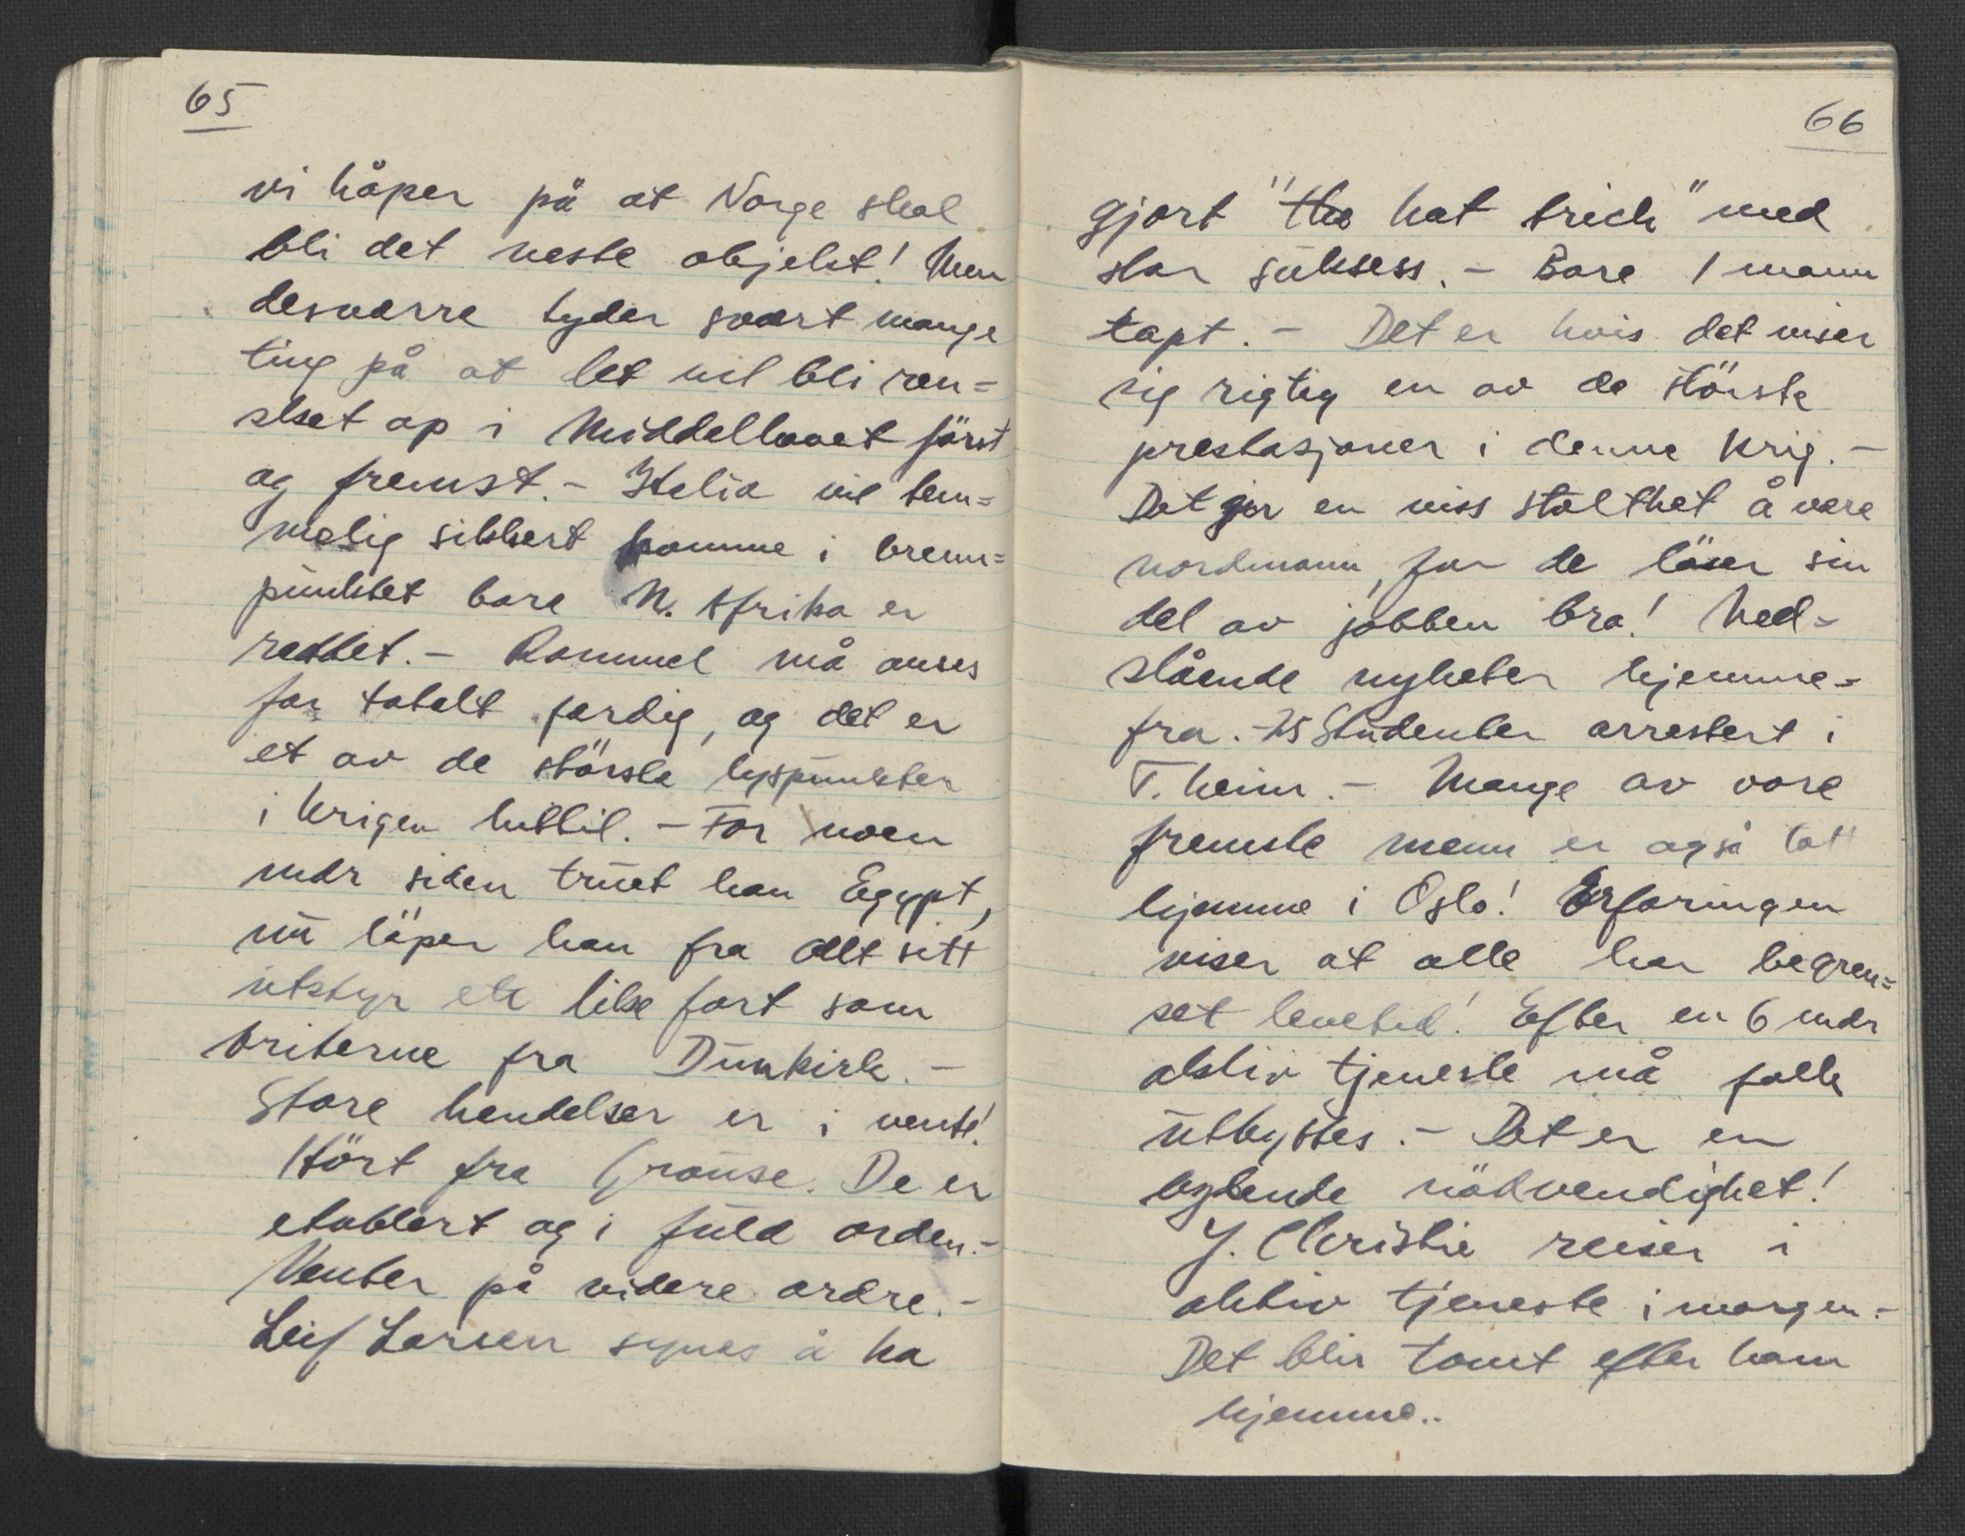 65
vi håper på at Norge skal
bli det neste objekt! Men
desværre tyder svært mange
ting på at det vil bli ren=
sket op i Middelhavet först
og fremst. - Italia vil tem=
melig sikkert komme i brenn=
punktet bare N. Afrika er
reddet. - Rommel må anses
for totalt ferdig, og det er
et av de störste lyspunkter
i krigen hittil. - For noen
mdr siden truet han Egypt,
nu löper han fra alt sitt
utstyr etc like fort som
briterne fra Dunkirk. -
Store hendelser er i vente!
Hört fra Grouse. De er
etablert og i fuld orden. -
Venter på videre ordre. -
Leif Larsen synes å ha
66
gjort "the hat trick" med
stor suksess. - Bare 1 mann
tapt. - Det er hvis det viser
sig rigtig en av de störste
prestasjoner i denne krig. -
Det gir en viss stolthet å være
nordmann, for de löser sin
del av jobben bra! Ned=
slående nyheter hjemme=
fra. - 25 Studenter arrestert i
T.heim. - Mange av vore
fremste menn er også tatt
hjemme i Oslo! Erfaringen
viser at alle har begren=
set levetid! Efter en 6 mdr
aktiv tjeneste må folk
utbyttes. - Det er en
bydende nödvendighet!
J. Christie reiser i
aktiv tjeneste i morgen. -
Det blir tomt efter ham
hjemme..